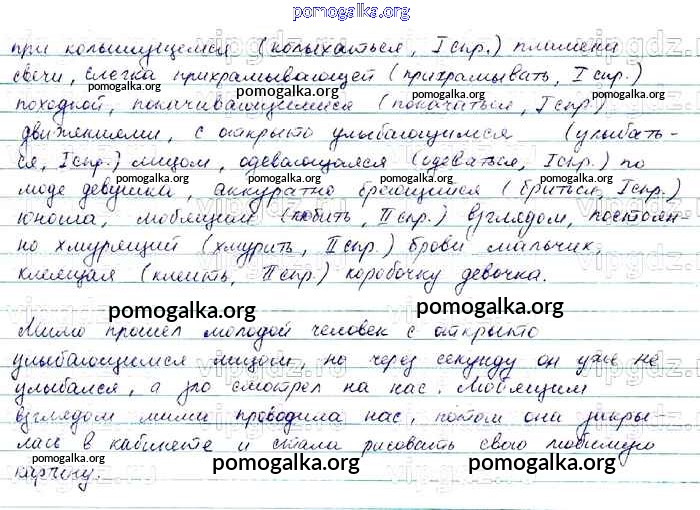 pomogalka.org
при колышущемся (колыхаться, I спр.) пламени
свечи, слегка прихрамывающей (прихрамывать, I спр.)
походкой, покачивающимися (покачаться, I спр.)
движениями, с открыто улыбающимся (улыбать-
ся, I спр.) лицом, одевающаяся (одеваться, I спр.) по
моде девушка, аккуратно бреющийся (бриться, I спр.)
юноша, любящим (любить, II спр.) взглядом, постоян-
но хмурящий (хмурить, II спр.) брови мальчик,
клеящая (клеить, II спр.) коробочку девочка.
pomogalka.org pomogalka.org
Мимо прошел молодой человек с открыто
улыбающимся лицом, но через секунду он уже не
улыбался, а зло смотрел на нас. Любящим
взглядом проводила нас, потом она укры-
лась в кабинете и стала рисовать свою любимую
картину.
pomogalka.org pomogalka.org